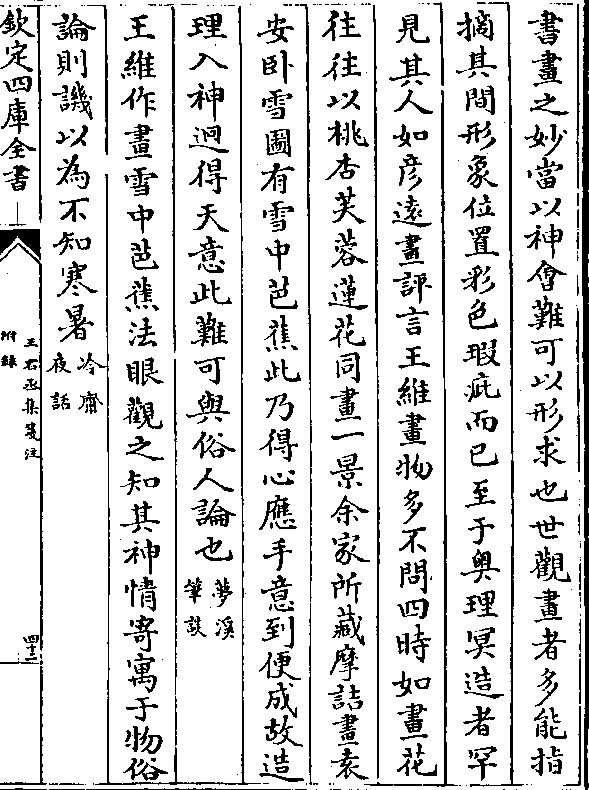 書畫之妙當以神會難可以形求也世觀畫者多能指
摘其間形象位置彩色瑕疵而已至于奥理冥造者罕
見其人如彦遠畫評言王維畫物多不問四時如畫花
往往以桃杏芙蓉蓮花同畫一景余家所藏摩詰畫袁
安卧雪圖有雪中芭蕉此乃得心應手意到便成故造
理入神迥得天意此難可與俗人論也夢溪筆談
王維作畫雪中芭蕉法眼觀之知其神情寄寓于物俗
論則譏以為不知寒暑冷齋夜話
欽定四庫全書
王右丞集箋注
附錄
四十二